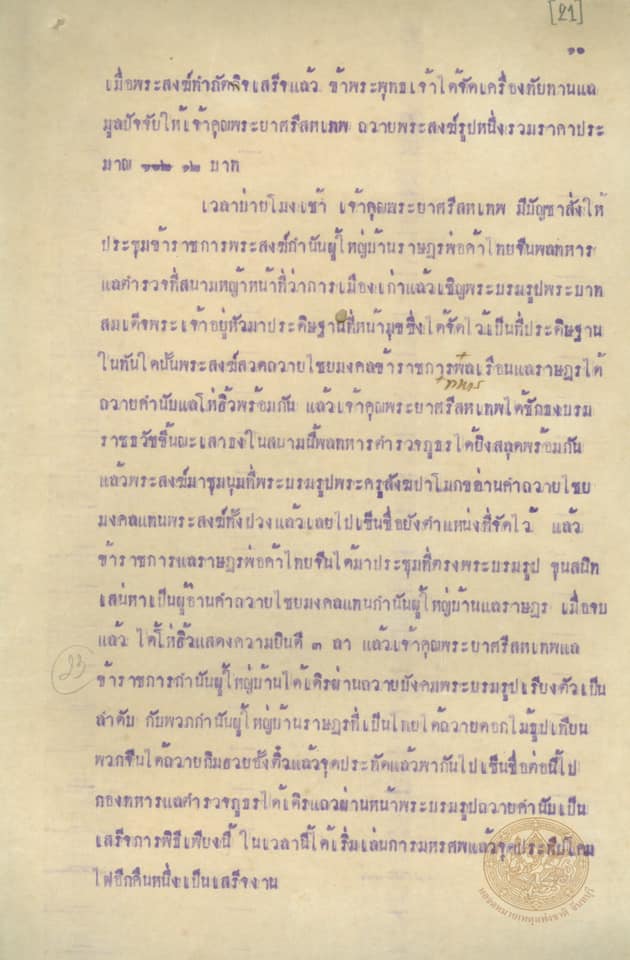 [21]
๑๐
เมื่อพระสงฆ์ทำภัตกิจเสร็จแล้ว ข้าพระพุทธเจ้าได้จัดเครื่องทัยทานแล
มูลปัจจัยให้เจ้าคุณพระยาศรีสหเทพ ถวายพระสงฆ์รูปหนึ่งรวมราคาประ
มาณ ๑๐๒ ๑๒ บาท
เวลาบ่ายโมงเช้า เจ้าคุณพระยาศรีสหเทพ มีบัญชาสั่งให้
ประชุมข้าราชการพระสงฆ์กำนันผู้ใหญ่บ้านราษฎรพ่อค้าไทยจีนพลทหาร
แลตำรวจที่สนามหญ้าหน้าที่ว่าการเมืองเก่าแล้วเชิญพระบรมรูปพระบาท
สมเด็จพระเจ้าอยู่หัวมาประดิษฐานที่หน้ามุขซึ่งได้จัดไว้เป็นที่ประดิษฐาน
ในทันใดนั้นพระสงฆ์สวดถวายไชยมงคลข้าราชการพลเรือนแลราษฎรได้
ทหาร
ถวายคำนับแลโห่ฮิ้วพร้อมกัน แล้วเจ้าคุณพระยาศรีสหเทพได้ชักธงบรม
ราชธวัชขึ้นณะเสาธงในสนามนี้พลทหารตำรวจภูธรได้ยิงสลุตพร้อมกัน
แล้วพระสงฆ์มาชุมนุมที่พระบรมรูปพระครูสังฆปาโมกขอ่านคำถวายไชย
มงคลแทนพระสงฆ์ทั้งปวงแล้วเลยไปเซ็นชื่อยังตำแหน่งที่จัดไว้ แล้ว
ข้าราชการแลราษฎรพ่อค้าไทยจีนได้มาประชุมที่ตรงพระบรมรูป ขุนสนิท
เสน่หาเป็นผู้อ่านคำถวายไชยมงคลแทนกำนันผู้ใหญ่บ้านแลราษฎร เมื่อจบ
แล้ว ได้โห่ฮิ้วแสดงความยินดี ๓ ลา แล้วเจ้าคุณพระยาศรีสหเทพแล
23
ข้าราชการกำนันผู้ใหญ่บ้านได้เดิรผ่านถวายบังคมพระบรมรูปเรียงตัวเป็น
ลำดับ กับพวกกำนันผู้ใหญ่บ้านราษฎรที่เป็นไทยได้ถวายดอกไม้ธูปเทียน
พวกจีนได้ถวายกิมฮวยอั้งติ๋วแล้วจุดประทัดแล้วพากันไปเซ็นชื่อต่อนี้ไป
กองทหารแลตำรวจภูธรได้เดิรแถวผ่านหน้าพระบรมรูปถวายคำนับเป็น
เสร็จการพิธีเพียงนี้ ในเวลานี้ได้เริ่มเล่นการมหรศพแล้วจุดประทีปโคม
ไฟอีกคืนหนึ่งเป็นเสร็จงาน
หอจดหมายเหตุแห่งชาติ จันทบุรี